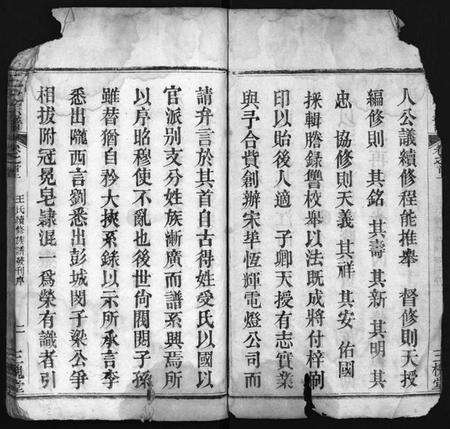 人公議續修程能推舉 督修則天授
編修則 再其銘 其壽 其新 其明 其
忠 協修則天義 其祥 其安 佑國
採輯謄錄讐校舉以法既成將付梓刷
印以貽後人適 子卿天授有志實業
與予合貲創辦宋埠恆輝電燈公司而
請弁言於其首自古得姓受氏以國以
官派别支分姓族漸廣而譜系興焉所
以序昭穆使不亂也後世尙閥閱子孫
雖替猶自矜大挾系錄以示所承言李
悉出隴西言劉悉出彭城閔子梁公爭
相拔附冠冕皂隸混一爲榮有識者引
王氏續修族譜
卷首
一
三槐堂